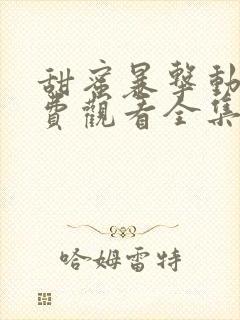 甜蜜暴擊動
費觀看全集
哈姆雷特